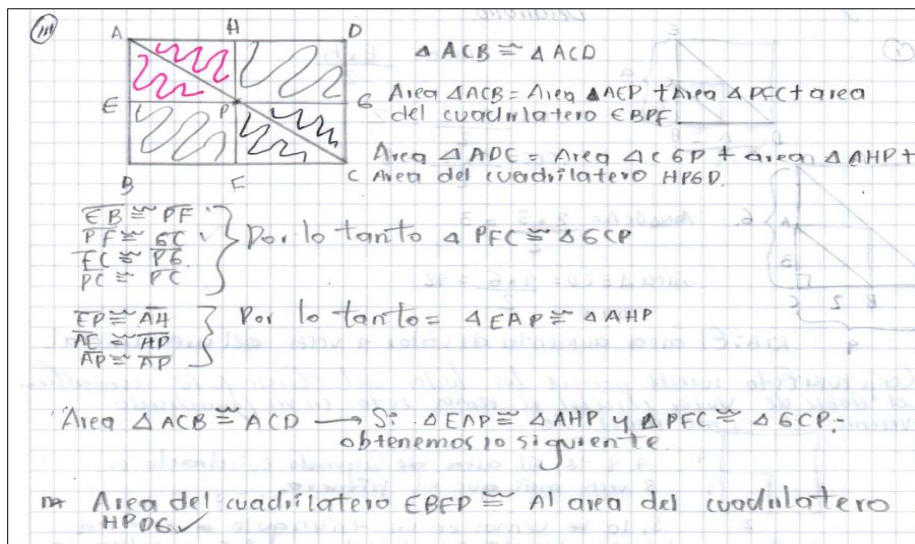 III
A H D
E P G
B F C
△ ACB ≅ △ ACD
Area △ACB = Area △AEP + Area △PFC + area
del cuadrilatero EBPF.
Area △ADC = Area △CGP + area △AHP +
Area del cuadrilatero HPGD.
EB ≅ PF
PF ≅ GC
FC ≅ PG
PC ≅ PC
Por lo tanto △ PFC ≅ △GCP
EP ≅ AH
AE ≅ HP
AP ≅ AP
Por lo tanto = △EAP ≅ △AHP
Area △ ACB ≅ ACD → Si △EAP ≅ △AHP y △PFC ≅ △GCP,
obtenemos lo siguiente
Area del cuadrilatero EBFP ≅ Al area del cuadrilatero
HPDG ✓